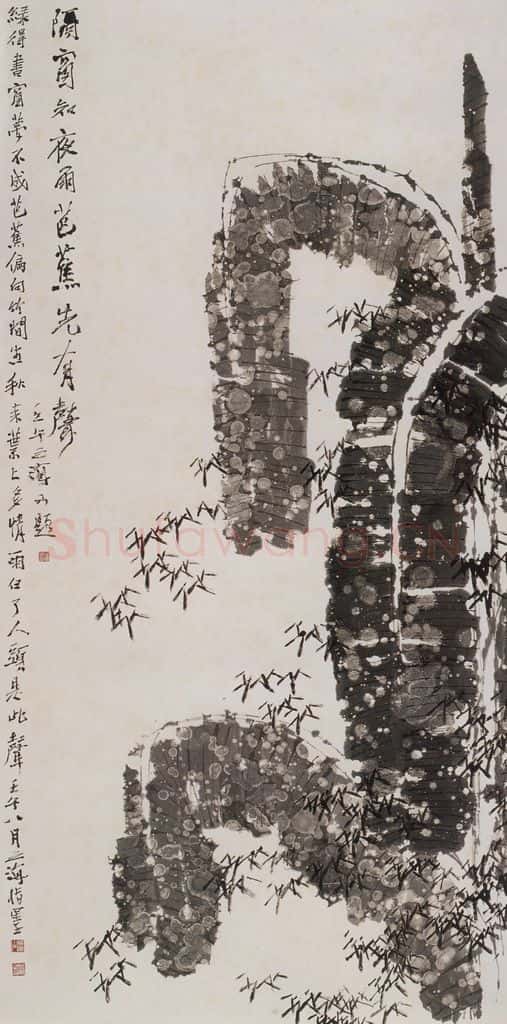 隔窗知夜雨芭蕉先有聲
壬午之海又題
綠得書窗夢不成芭蕉偏向竹間生秋來葉上無情雨白了人頭是此聲壬午八月之海指墨
Shufawang.CN